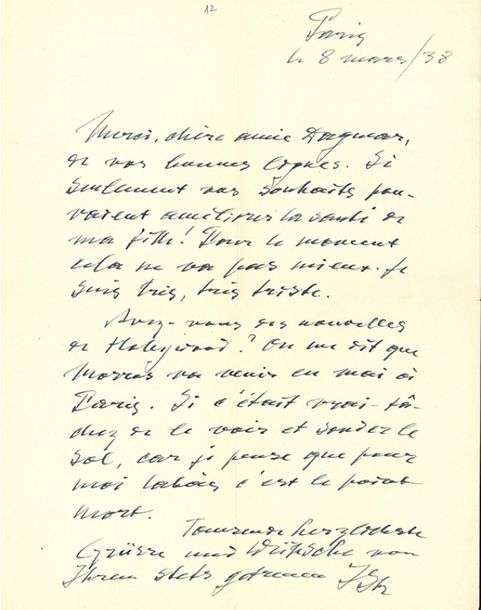 12
Paris
le 8 mars/38
Merci, chère amie Dagmar,
de vos bonnes lignes. Si
seulement vos souhaits pou-
vaient améliorer la santé de
ma fille! Pour le moment
cela ne va pas mieux. Je
suis très, très triste.
Avez-vous des nouvelles
de Hollywood? On me dit que
Morros va venir en mai à
Paris. Si c'était vrai - tâ-
chez de le voir et sonder le
sol, car je pense que pour
moi labàs c'est le point
mort.
Tausende herzlichste
Grüsse und Wünsche von
Ihrem stets getreuen IStr